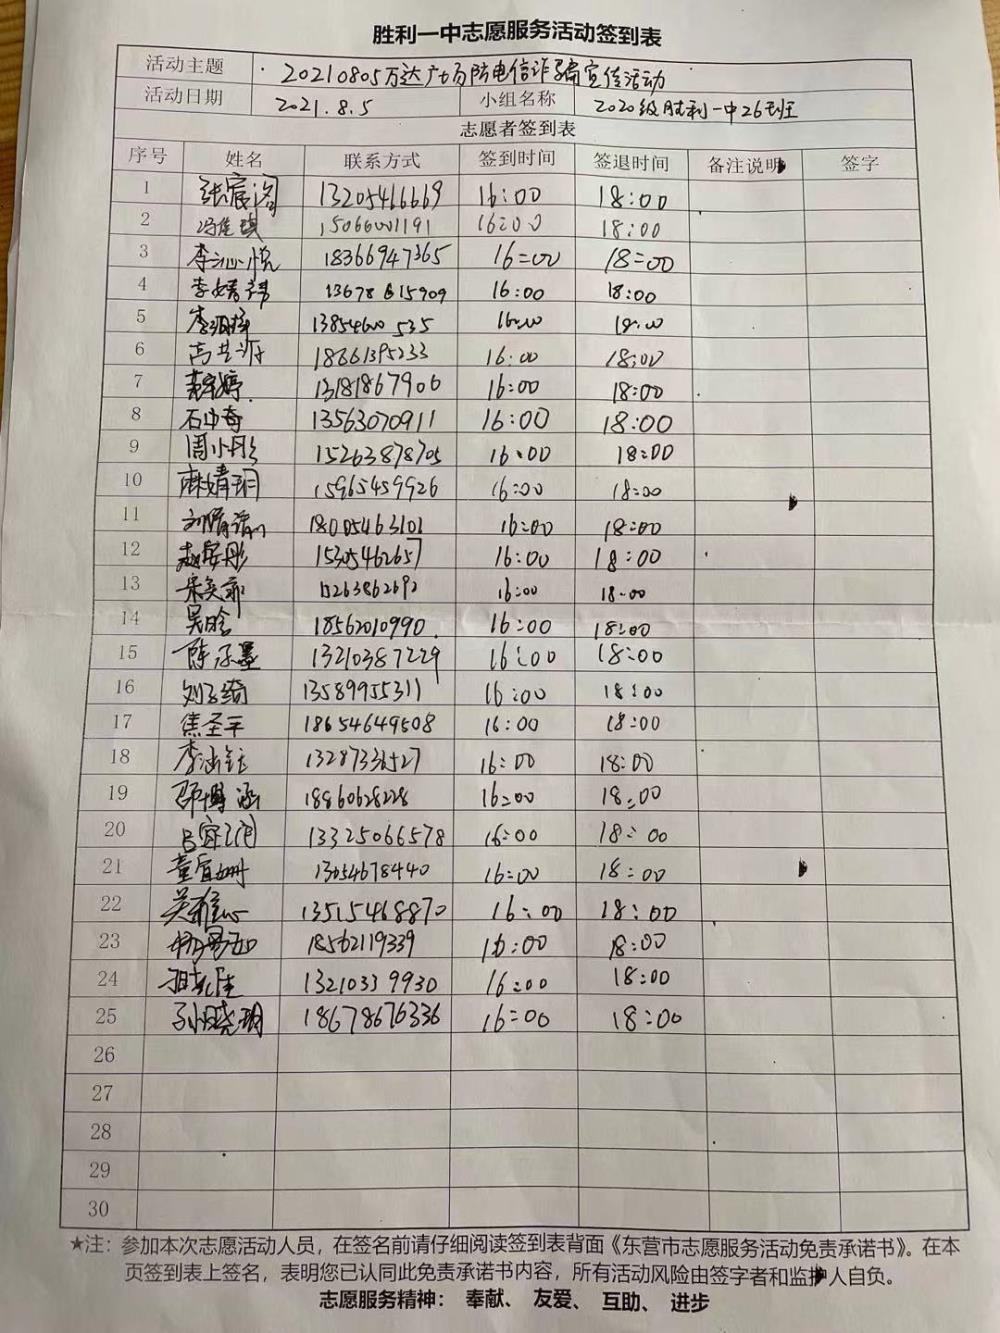 胜利一中志愿服务活动签到表
活动主题 20210805万达广场防电信诈骗宣传活动
活动日期 2021.8.5 小组名称 2020级胜利一中26班
志愿者签到表
序号 姓名 联系方式 签到时间 签退时间 备注说明 签字
1 张宸阁 13205466669 16:00 18:00
2 冯佳琪 15066001191 16:00 18:00
3 李沁悦 18366947365 16:00 18:00
4 李婧祎 13678615909 16:00 18:00
5 13854600535 16:00 18:00
6 18661395233 16:00 18:00
7 13181867906 16:00 18:00
8 石中奇 13563070911 16:00 18:00
9 周小彤 15263878705 16:00 18:00
10 麻婧玥 15965459926 16:00 18:00
11 18005463101 16:00 18:00
12 赵安彤 15305462657 16:00 18:00
13 15263862692 16:00 18:00
14 吴晗 18562010990 16:00 18:00
15 陈子墨 13210387229 16:00 18:00
16 刘子绮 13589955311 16:00 18:00
17 焦圣平 18654649508 16:00 18:00
18 李涵钰 13287336527 16:00 18:00
19 邵博涵 18860628228 16:00 18:00
20 13325066578 16:00 18:00
21 董宜姗 13054678440 16:00 18:00
22 13515468870 16:00 18:00
23 18562119339 16:00 18:00
24 13210339930 16:00 18:00
25 孙晓玥 18678676336 16:00 18:00
26
27
28
29
30
★注：参加本次志愿活动人员，在签名前请仔细阅读签到表背面《东营市志愿服务活动免责承诺书》。在本
页签到表上签名，表明您已认同此免责承诺书内容，所有活动风险由签字者和监护人自负。
志愿服务精神： 奉献、 友爱、 互助、 进步